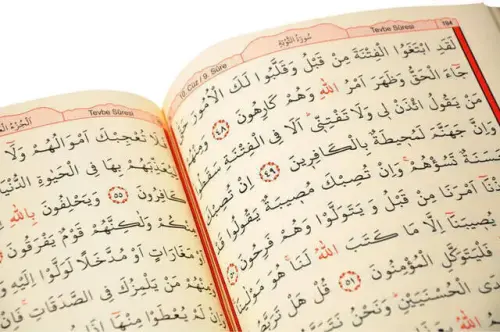 10. Cüz / 9. Sûre سُورَةُ التَّوْبَةِ Tevbe Sûresi 194
لَقَدِ ابْتَغَوُا الْفِتْنَةَ مِنْ قَبْلُ وَقَلَّبُوا لَكَ الْاُمُورَ حَتّٰى
جَٓاءَ الْحَقُّ وَظَهَرَ اَمْرُ اللّٰهِ وَهُمْ كَارِهُونَ ٤٨ وَمِنْهُمْ
مَنْ يَقُولُ ائْذَنْ لِي وَلَا تَفْتِنِّي اَلَا فِي الْفِتْنَةِ سَقَطُوا
وَاِنَّ جَهَنَّمَ لَمُحِيطَةٌ بِالْكَافِرِينَ ٤٩ اِنْ تُصِبْكَ
حَسَنَةٌ تَسُؤْهُمْ وَاِنْ تُصِبْكَ مُصِيبَةٌ يَقُولُوا
اَمْرَنَا مِنْ قَبْلُ وَيَتَوَلَّوْا وَهُمْ فَرِحُونَ ٥٠
يُصِيبَنَٓا اِلَّا مَا كَتَبَ اللّٰهُ لَنَا هُوَ مَوْلٰينَا
فَلْيَتَوَكَّلِ الْمُؤْمِنُونَ ٥١ قُلْ هَلْ تَرَبَّصُ
الْحُسْنَيَيْنِ وَنَحْنُ
Tevbe Sûresi
فَلَا تُعْجِبْكَ اَمْوَالُهُمْ وَلَٓا
لِيُعَذِّبَهُمْ بِهَا فِي الْحَيٰوةِ الدُّنْيَا
كَافِرُونَ ٥٥ وَيَحْلِفُونَ بِاللّٰهِ
مِنْكُمْ وَلٰكِنَّهُمْ قَوْمٌ يَفْرَقُونَ
اَوْ مَغَارَاتٍ اَوْ مُدَّخَلًا لَوَلَّوْا اِلَيْهِ
مَنْ يَلْمِزُكَ فِي الصَّدَقَاتِ فَاِنْ
لَمْ يُعْطَوْا مِنْهَٓا اِذَا